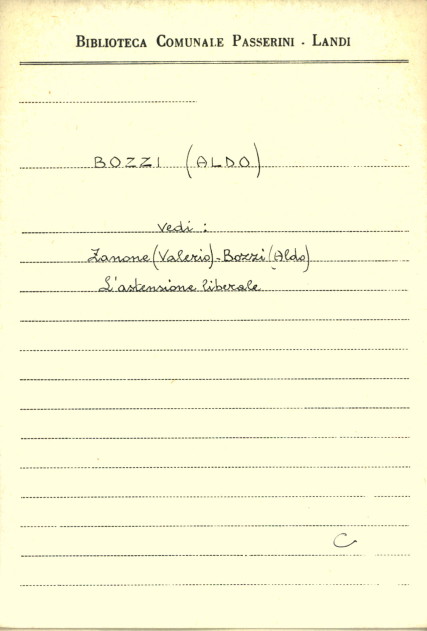 BIBLIOTECA COMUNALE PASSERINI - LANDI
BOZZI (ALDO)
vedi :
Zanone (Valerio) - Bozzi (Aldo)
L'astensione liberale
C